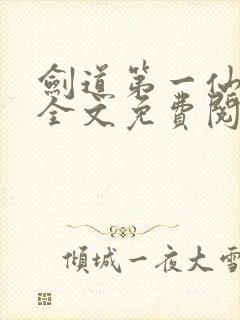 劍道第一仙
全文免費閱
傾城一夜大雪